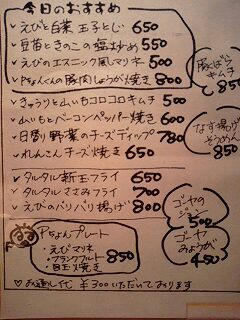 今日のおすすめ
えびと白菜玉子とじ 650
豆苗ときのこの塩炒め 550
えびのエスニック風マリネ 500
Pちょんくんの豚肉しょうが焼き 800
きゅうりと山いもコロコロキムチ 500
山いもとベーコンペッパー焼き 600
日替り野菜のチーズディップ 780
れんこんチーズ焼き 650
タルタル新玉フライ 650
タルタルささみフライ 700
えびのパリパリ揚げ 800
豚ばらキムチ 850
なす揚げそうめん 850
ゴーヤのジョン 500
ゴーヤみょうが 450
Pちょんプレート
・えびマヨネ
・フランクフルト
・目玉焼き
850
♡お通し代 ¥300いただいております